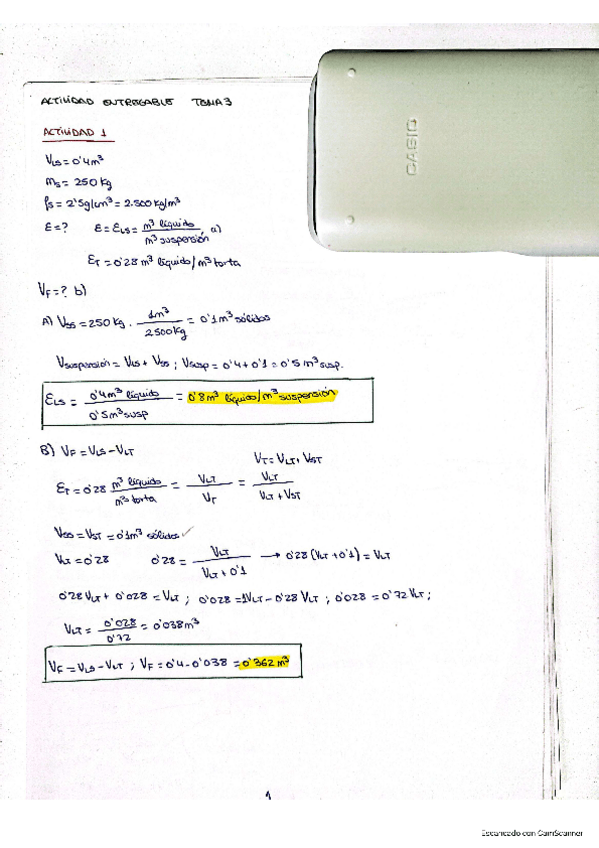 ACTIVIDAD ENTREGABLE TEMA 3
CASIO
ACTIVIDAD 1
V_LS = 0'4m³
m_s = 250 kg
ρ_s = 2'5g/cm³ = 2.500 kg/m³
ε = ? ε = ε_LS = m³ líquido / m³ suspensión a)
ε_T = 0'28 m³ líquido/m³ torta
V_F = ? b)
A) V_SS = 250 kg · 1m³ / 2500 kg = 0'1 m³ sólidos
V_suspensión = V_LS + V_SS ; V_susp = 0'4 + 0'1 = 0'5 m³ susp.
ε_LS = 0'4 m³ líquido / 0'5 m³ susp = 0'8 m³ líquido/m³ suspensión
B) V_F = V_LS - V_LT
V_T = V_LT + V_ST
ε_T = 0'28 m³ líquido / m³ torta = V_LT / V_T = V_LT / V_LT + V_ST
V_SS = V_ST = 0'1 m³ sólidos ✓
V_LT = 0'28 0'28 = V_LT / V_LT + 0'1 → 0'28 (V_LT + 0'1) = V_LT
0'28 V_LT + 0'028 = V_LT ; 0'028 = 1V_LT - 0'28 V_LT ; 0'028 = 0'72 V_LT ;
V_LT = 0'028 / 0'72 = 0'038 m³
V_F = V_LS - V_LT ; V_F = 0'4 - 0'038 = 0'362 m³
1
Escaneado con CamScanner